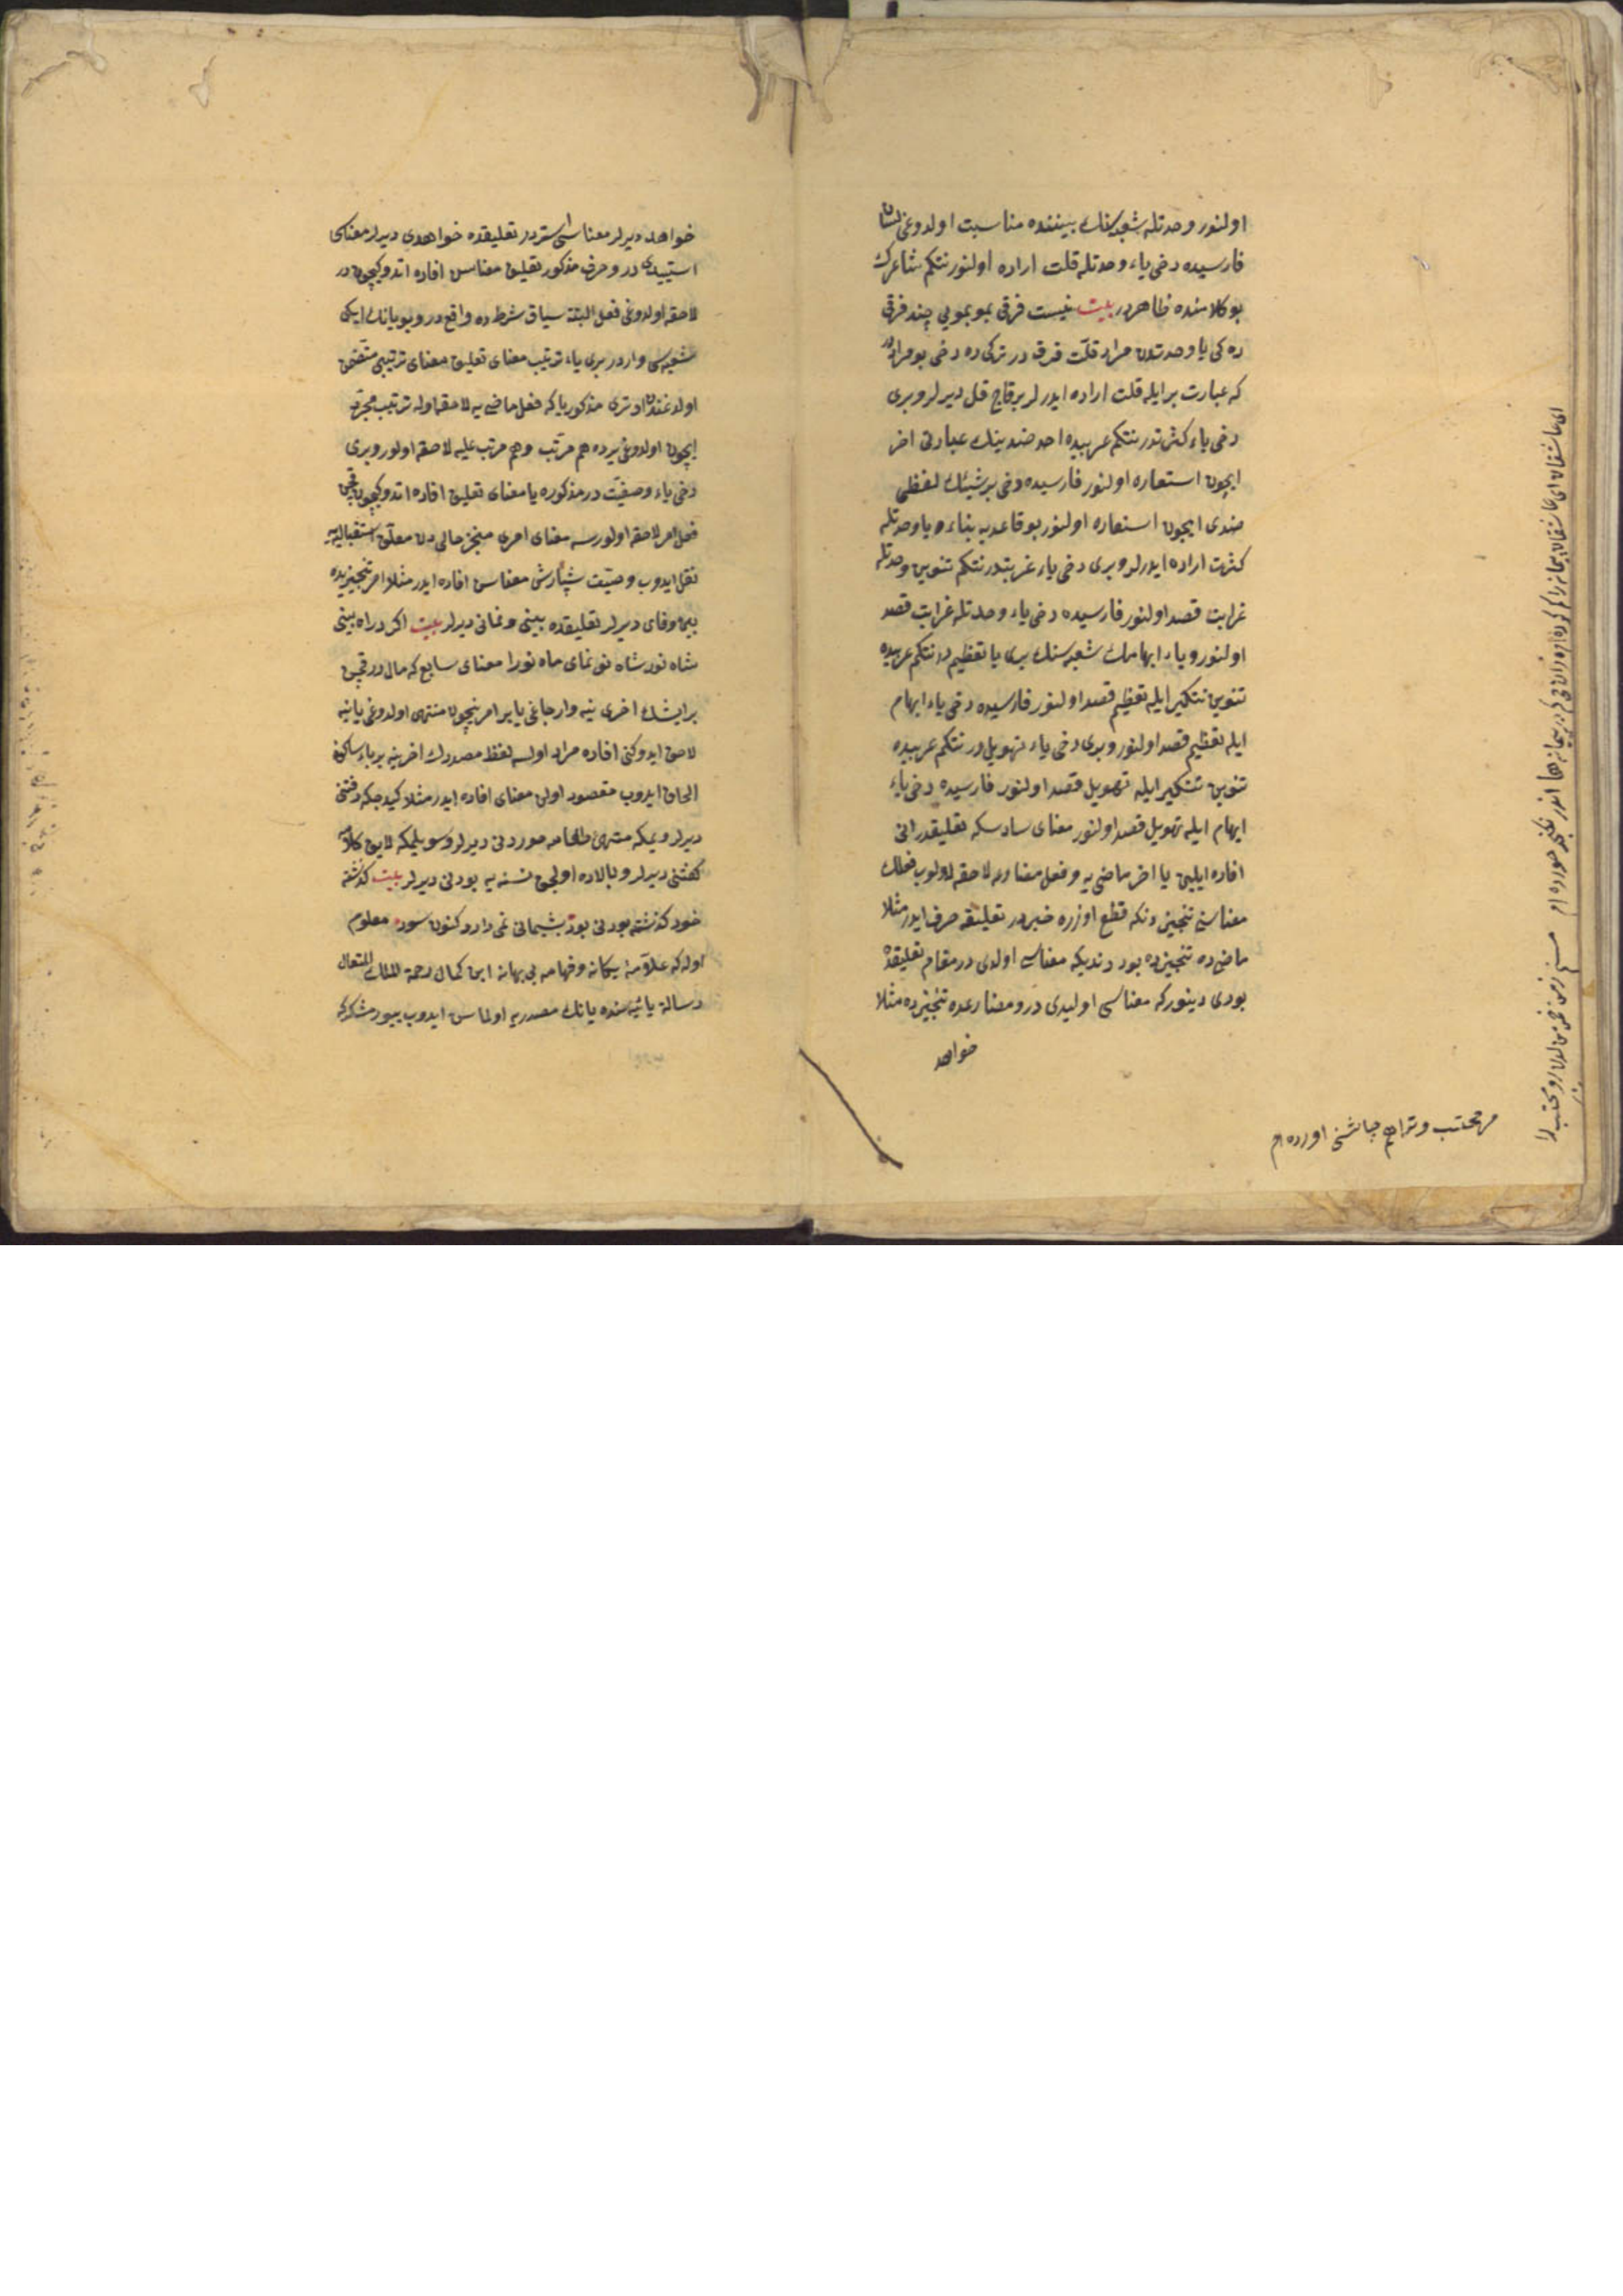 اولنور وحدتله شعبه‌سنك بيننده مناسبت اولدوغی لسان
فارسيده دخی ياء وحدتله قلت اراده اولنور نتكم شاعرك
بو كلامنده ظاهردر بيت نيست فرقی بمو بمويی چند فرقی
ده كی يا وحدتدن مراد قلّت فرق در تركی ده دخی بو مراددر
كه عبارت بر ايله قلت اراده ايدرلر بر قاچ قل ديرلر و بری
دخی ياء كثرتدر نتكم عربيده احد ضدينك عبارتی اخر
ايچون استعاره اولنور فارسيده دخی بر شيئك لفظی
ضدی ايچون استعاره اولنور بو قاعديه بناء و يا وحدتله
كثرت اراده ايدرلر و بری دخی ياء غربتدر نتكم تنوين وحدتله
غرابت قصد اولنور فارسيده دخی ياء وحدتله غرابت قصد
اولنور و ياء ابهامك شعبه سنك بری يا تعظيم در نتكم عربيده
تنوين تنكير ايله تعظيم قصد اولنور فارسيده دخی ياء ابهام
ايله تعظيم قصد اولنور و بری دخی ياء تهويل در نتكم عربيده
تنوين تنكير ايله تهويل قصد اولنور فارسيده دخی ياء
ابهام ايله تهويل قصد اولنور معنای سادسكه تعليقدر انی
افاده ايلين يا اخر ماضی يه و فعل مضارعه لاحقه اولوب فعلك
معناسن تنجيزدنكه قطع اوزره خبردر تعليقه صرف ايدر مثلا
ماضی ده تنجيزده بود دنديكه معناسی اولدی در مقام تعليقده
بودی دينور كه معناسی اوليدی در و مضارعده تنجيزده مثلا
خواهد
مر محتسب و ترا هم چاشنی اورده ام
خواهد ديرلر معناسی استر در تعليقده خواهدی ديرلر معناسی
استييدی در و حرف مذكور تعليق معناسن افاده اتدوكيچون در
لاحقه اولدوغی فعل البته سياق شرط ده واقع در و بو يانك ايكی
شعبه‌سی واردر بری ياء ترتيب معنای تعليق معنای ترتيبی متضمن
اولدوغندن اوتری مذكور يا كه فعل ماضی يه لاحقه اوله ترتيب مجرد
ايچون اولدوغی يرده هم مرتّب و هم مرتب عليه لاحقه اولور و بری
دخی ياء وصيّت در مذكوره يا معنای تعليق افاده اتدوكيچون قچن
فعل امر لاحقه اولورسه معنای امری منجز حالی دن معلّق استقباليه
نقل ايدوب وصيّت سپارش معناسن افاده ايدر مثلا امر تنجيزيده
ببين و نمای ديرلر تعليقده بينی و نمائی ديرلر بيت اكر در راه بينی
شاه نورا شاه نو نمای ماه نورا معنای سابع كه مال در قچن
بر ايشك اخری نيه وارجاغی يا بر امر نيچون منتهی اولدوغی يا نيه
لاحق ايدوكنی افاده مراد اولسه لفظ مصدرك اخرينه بر ياء ساكنه
الحاق ايدوب مقصود اولن معنای افاده ايدر مثلا كيدجكه رفتنی
ديرلر و يمكه منتهی طعامه خوردنی ديرلر و سويلمكه لايق كلامه
كفتنی ديرلر و بالاده اوليجق نسنه يه بودنی ديرلر بيت كذشته
خود كذشته بودنی بود پشيمانی نمی دارد كنون سود معلوم
اوله كه علّامۀ يكانه و فهامه بی بهانه ابن كمال رحمة الملك المتعال
رسالۀ يائيه سنده يانك مصدريه اولماسن ايدوب بيورمشدركه